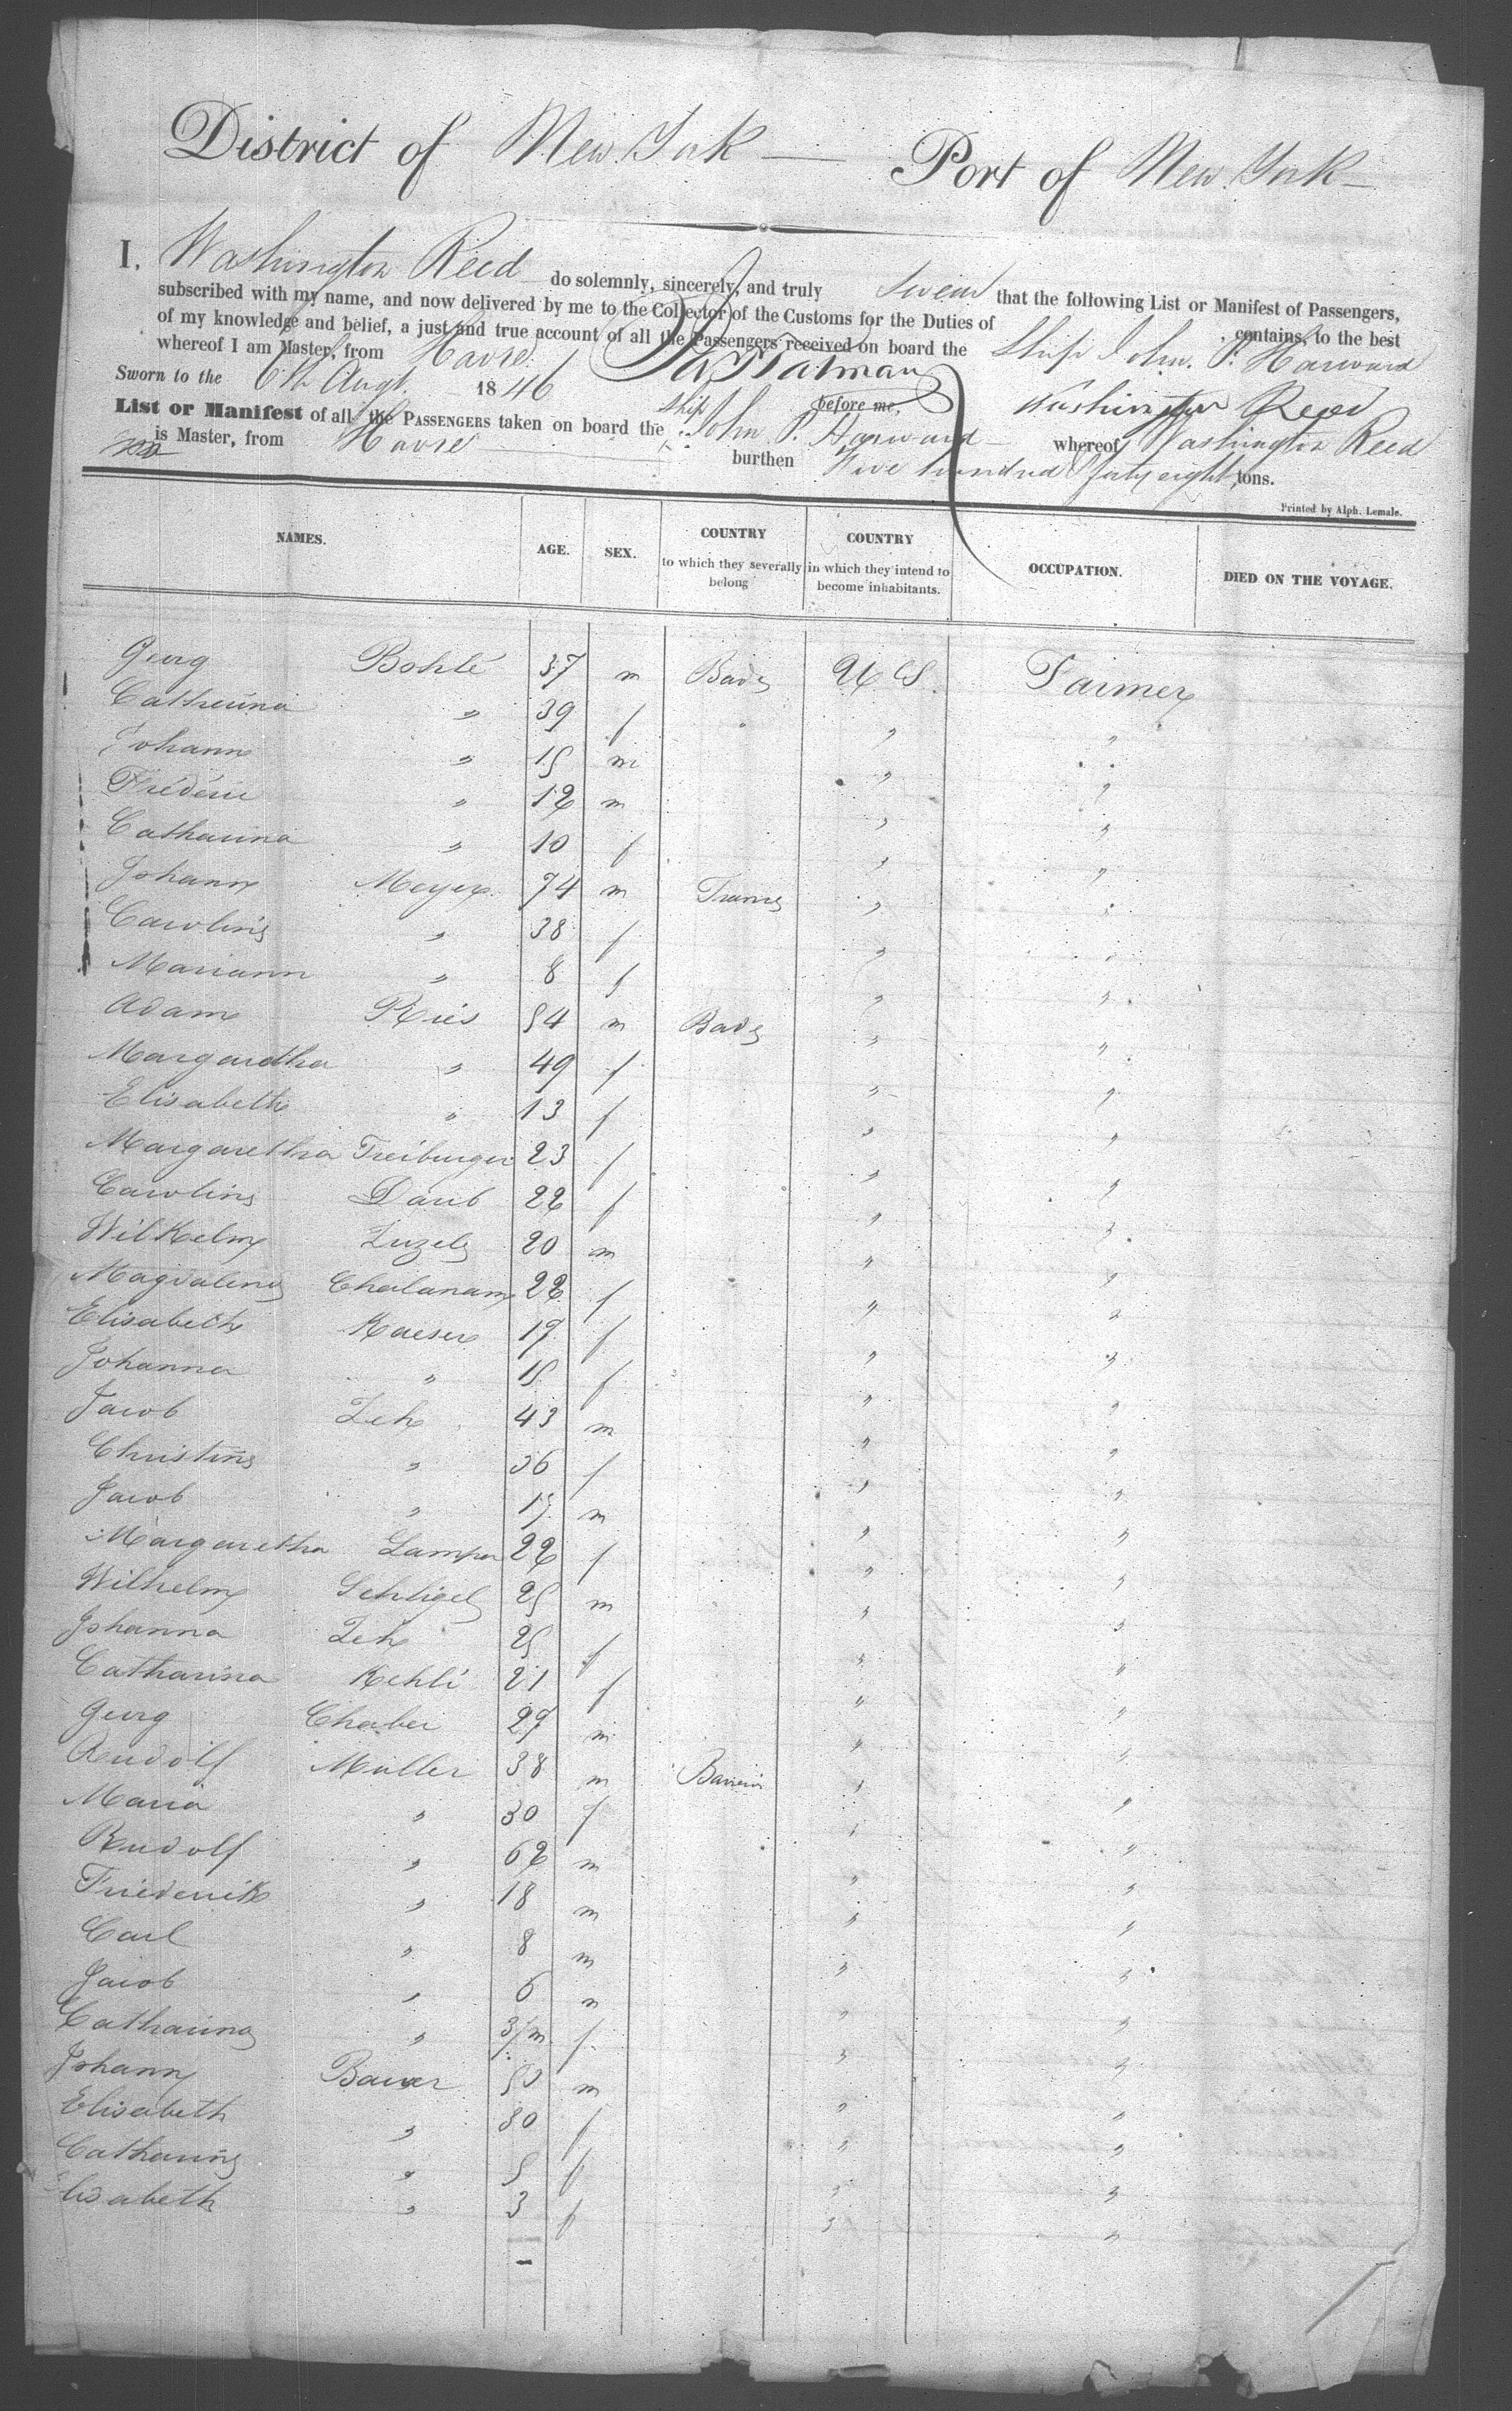 District of New York — Port of New York —
I, Washington Reed do solemnly, sincerely, and truly Swear that the following List or Manifest of Passengers,
subscribed with my name, and now delivered by me to the Collector of the Customs for the Duties of
, contains, to the best
of my knowledge and belief, a just and true account of all the Passengers received on board the Ship John P. Harward
whereof I am Master, from Havre.
Sworn to the 6th Augt. 1846
before me, Washington Reed
List or Manifest of all the PASSENGERS taken on board the Ship John P. Harward whereof Washington Reed
is Master, from Havre burthen Five hundred forty eight tons.
Printed by Alph. Lemale.
NAMES. AGE. SEX. COUNTRY to which they severally belong COUNTRY in which they intend to become inhabitants. OCCUPATION. DIED ON THE VOYAGE.
Georg Bohlé 37 m Bade U S. Farmer
Catherina " 39 f " " "
Johann " 15 m " "
Fréderic " 12 m " "
Catharina " 10 f " "
Johann Meyer 74 m France " "
Caroline " 38 f " "
Mariann " 8 f " "
Adam Ries 54 m Bade " "
Margaretha " 49 f " "
Elisabeth " 13 f " "
Margaretha Freiburger 23 f " "
Caroline Daub 22 f " "
Wilhelm 20 m " "
Magdalena 22 f " "
Elisabeth Kaeser 19 f " "
Johanna " 15 f " "
Jacob Zeh 43 m " "
Christine " 36 f " "
Jacob " 17 m " "
Margaretha 22 f " "
Wilhelm Schligel 25 m " "
Johanna Zeh 25 f " "
Catharina Kehli 21 f " "
Georg 27 m " "
Rudolf Muller 38 m Baviere " "
Maria " 30 f " "
Rudolf " 62 m " "
Friederik " 18 m " "
Carl " 8 m " "
Jacob " 6 m " "
Catharina " 3/m f " "
Johann Bauer 50 m " "
Elisabeth " 30 f " "
Catharine " 5 f " "
Elisabeth " 3 f " "